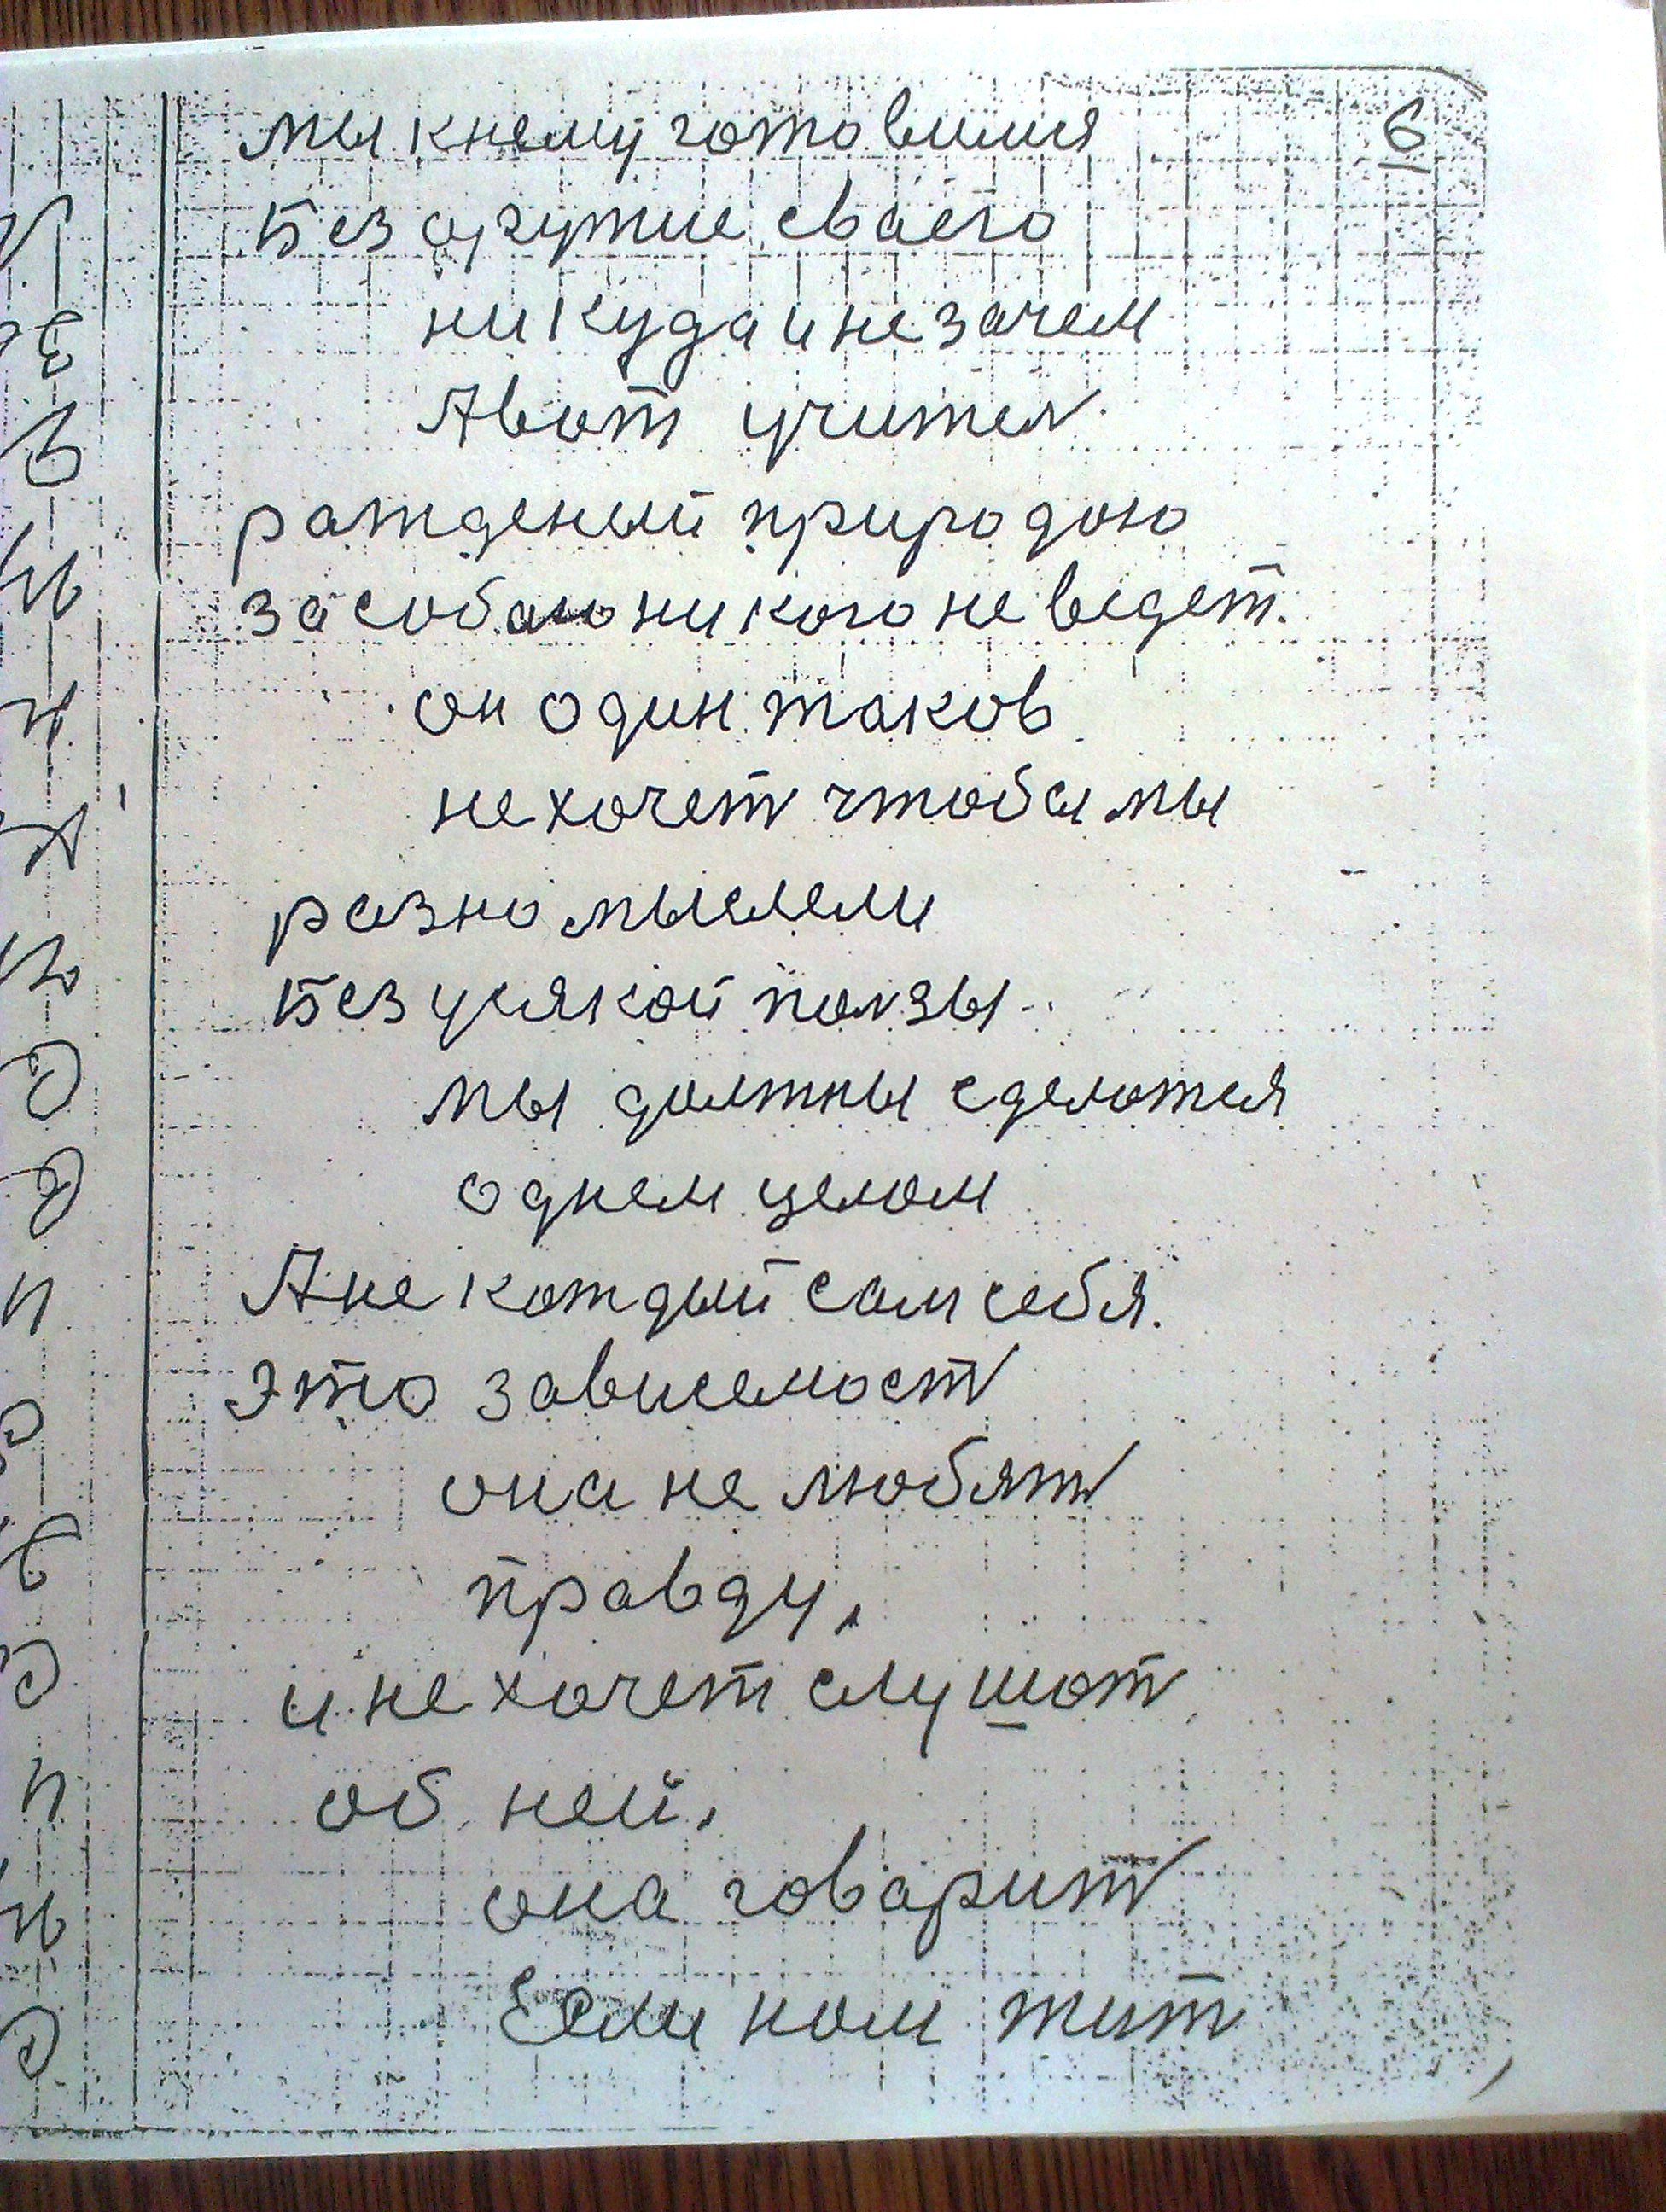 мы к нему готовился
6
Без аружие сваего
никуда и не зачем
А вот учител
ражденый природою
за собаю никого не ведет.
он один таков
не хочет чтобы мы
разно мыслели
Без усякой ползы
мы должны сделатся
аднем целом
А не каждый сам себя.
Это зависемост
она не любять
правду,
и не хочет слушат
об ней,
она говарит
Если нам жит